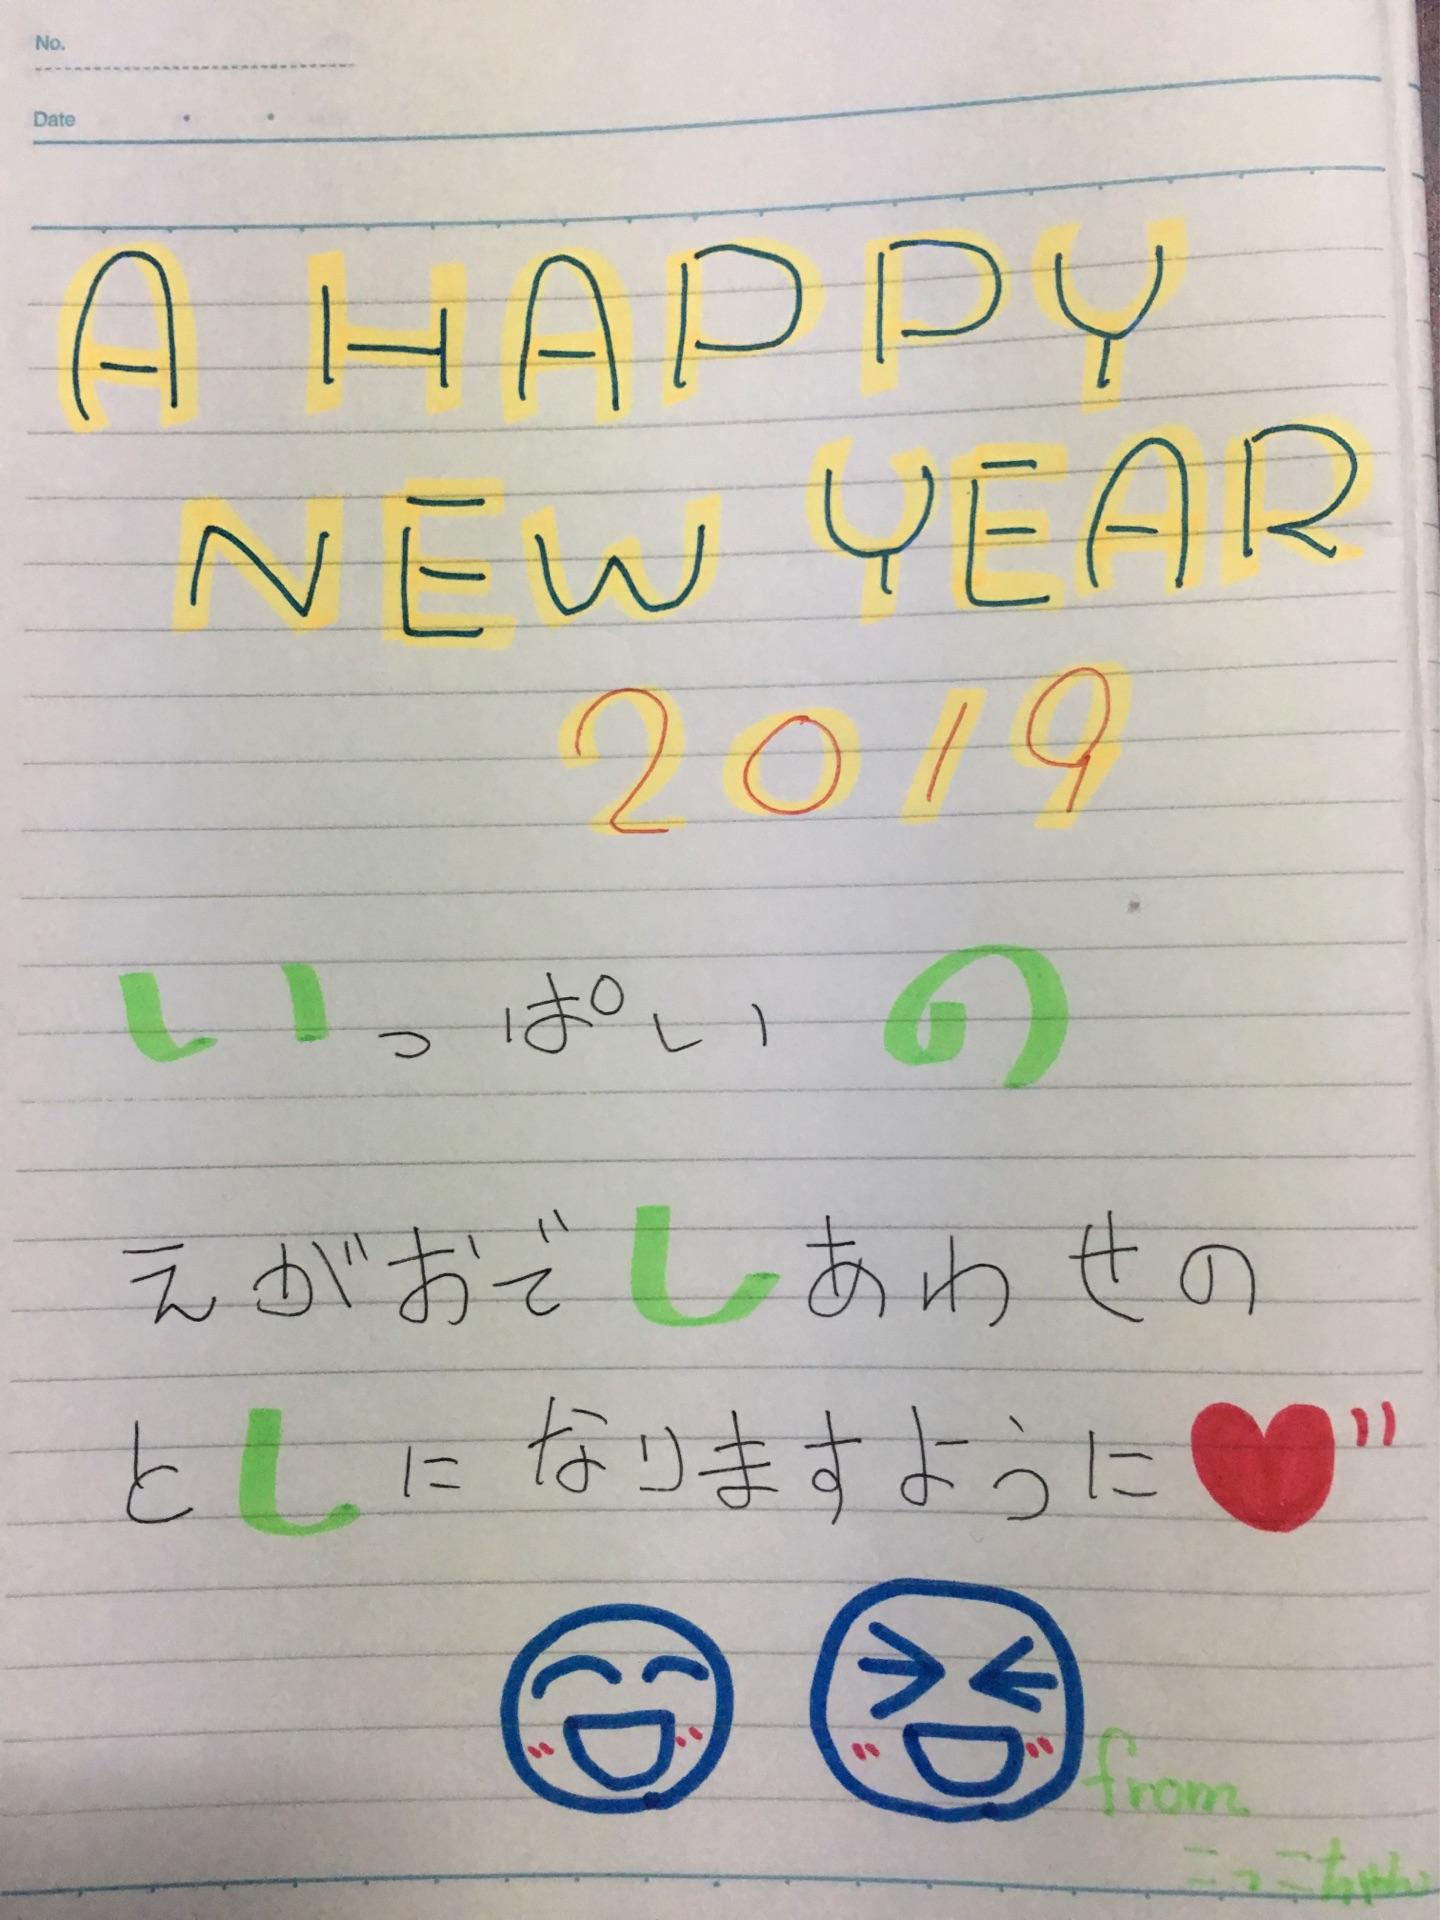 No.
Date
A HAPPY
NEW YEAR
2019
いっぱいの
えがおでしあわせの
としになりますように
from
こっこちゃん